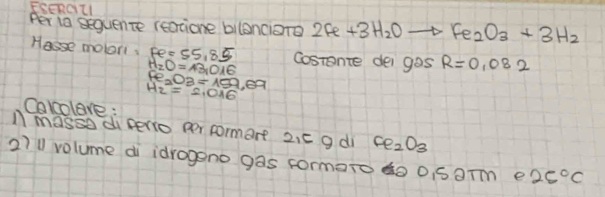 ESERCIZI
Per la seguente reazione bilanciata 2Fe + 3H₂O → Fe₂O₃ + 3H₂
Masse molari: Fe = 55,85 Costante dei gas R = 0,082
H₂O = 18,016
Fe₂O₃ = 159,69
H₂ = 2,016
Calcolare:
1) massa di ferro per formare 2,5 g di Fe₂O₃
2) il volume di idrogeno gas formato a 0,5 atm e 25°C